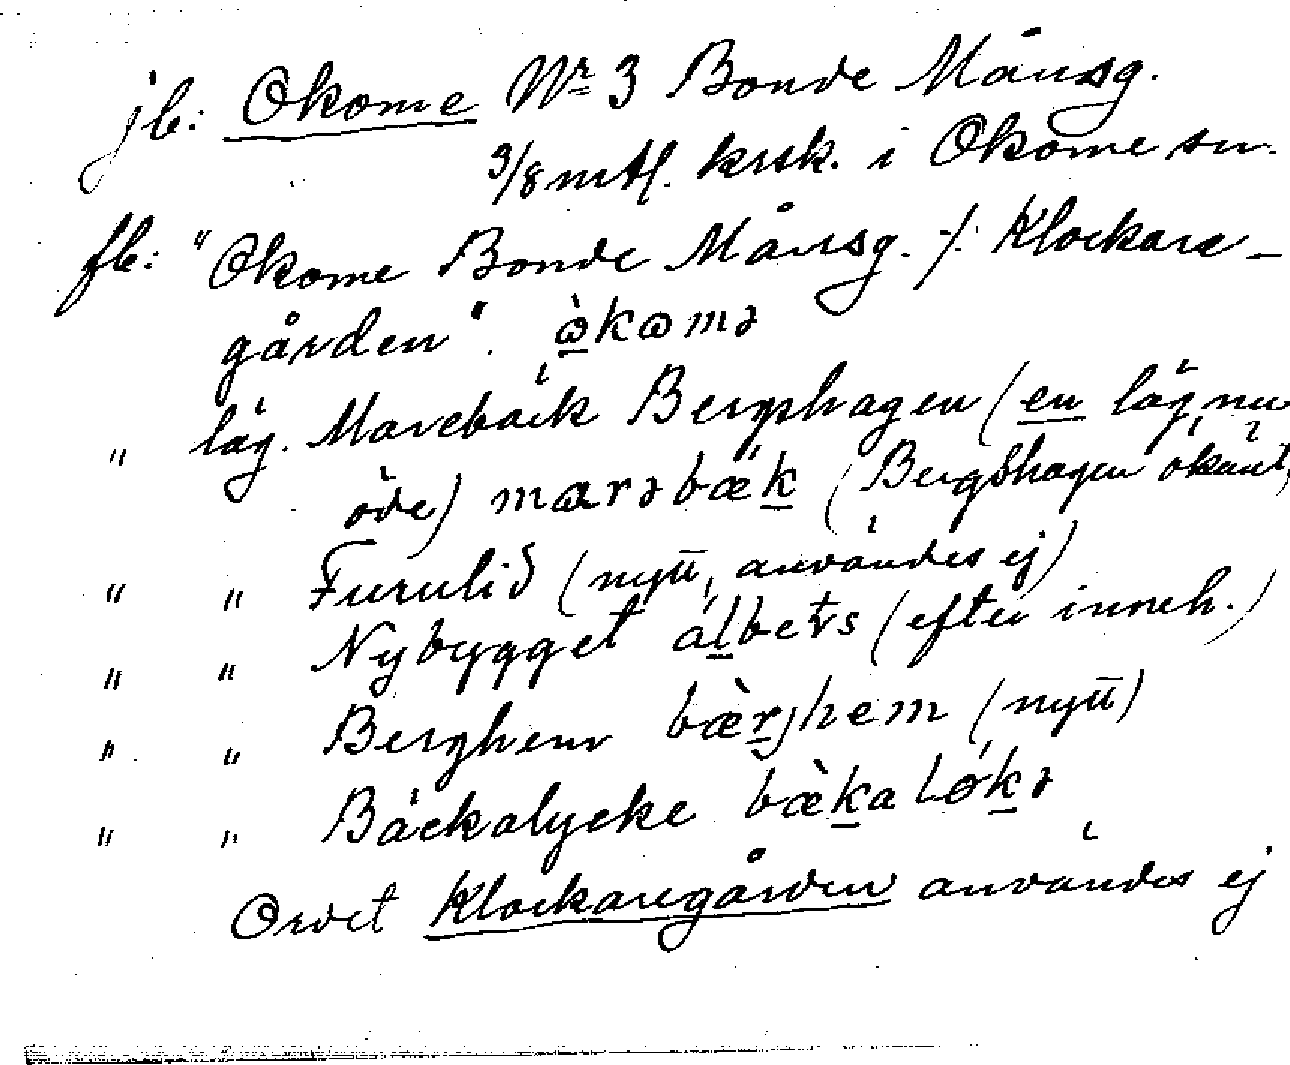 jb: Okome Nr 3 Bonde Månsg.
3/8 mtl. krsk. i Okome sn.
fb: "Okome Bonde Månsg. /: Klockare-
gården". ὼkɷmə
" läg. Marebäck Bergshagen (en läg, nu
öde) marəbæ̋k (Bergshagen okänt)
" " Furulid (nytt, användes ej)
" " Nybygget álbets (efter inneh.)
" " Berghem bæ̀rjhem (nytt)
" " Bäckalycke bæ̀kaløkə
Ordet Klockaregården användes ej